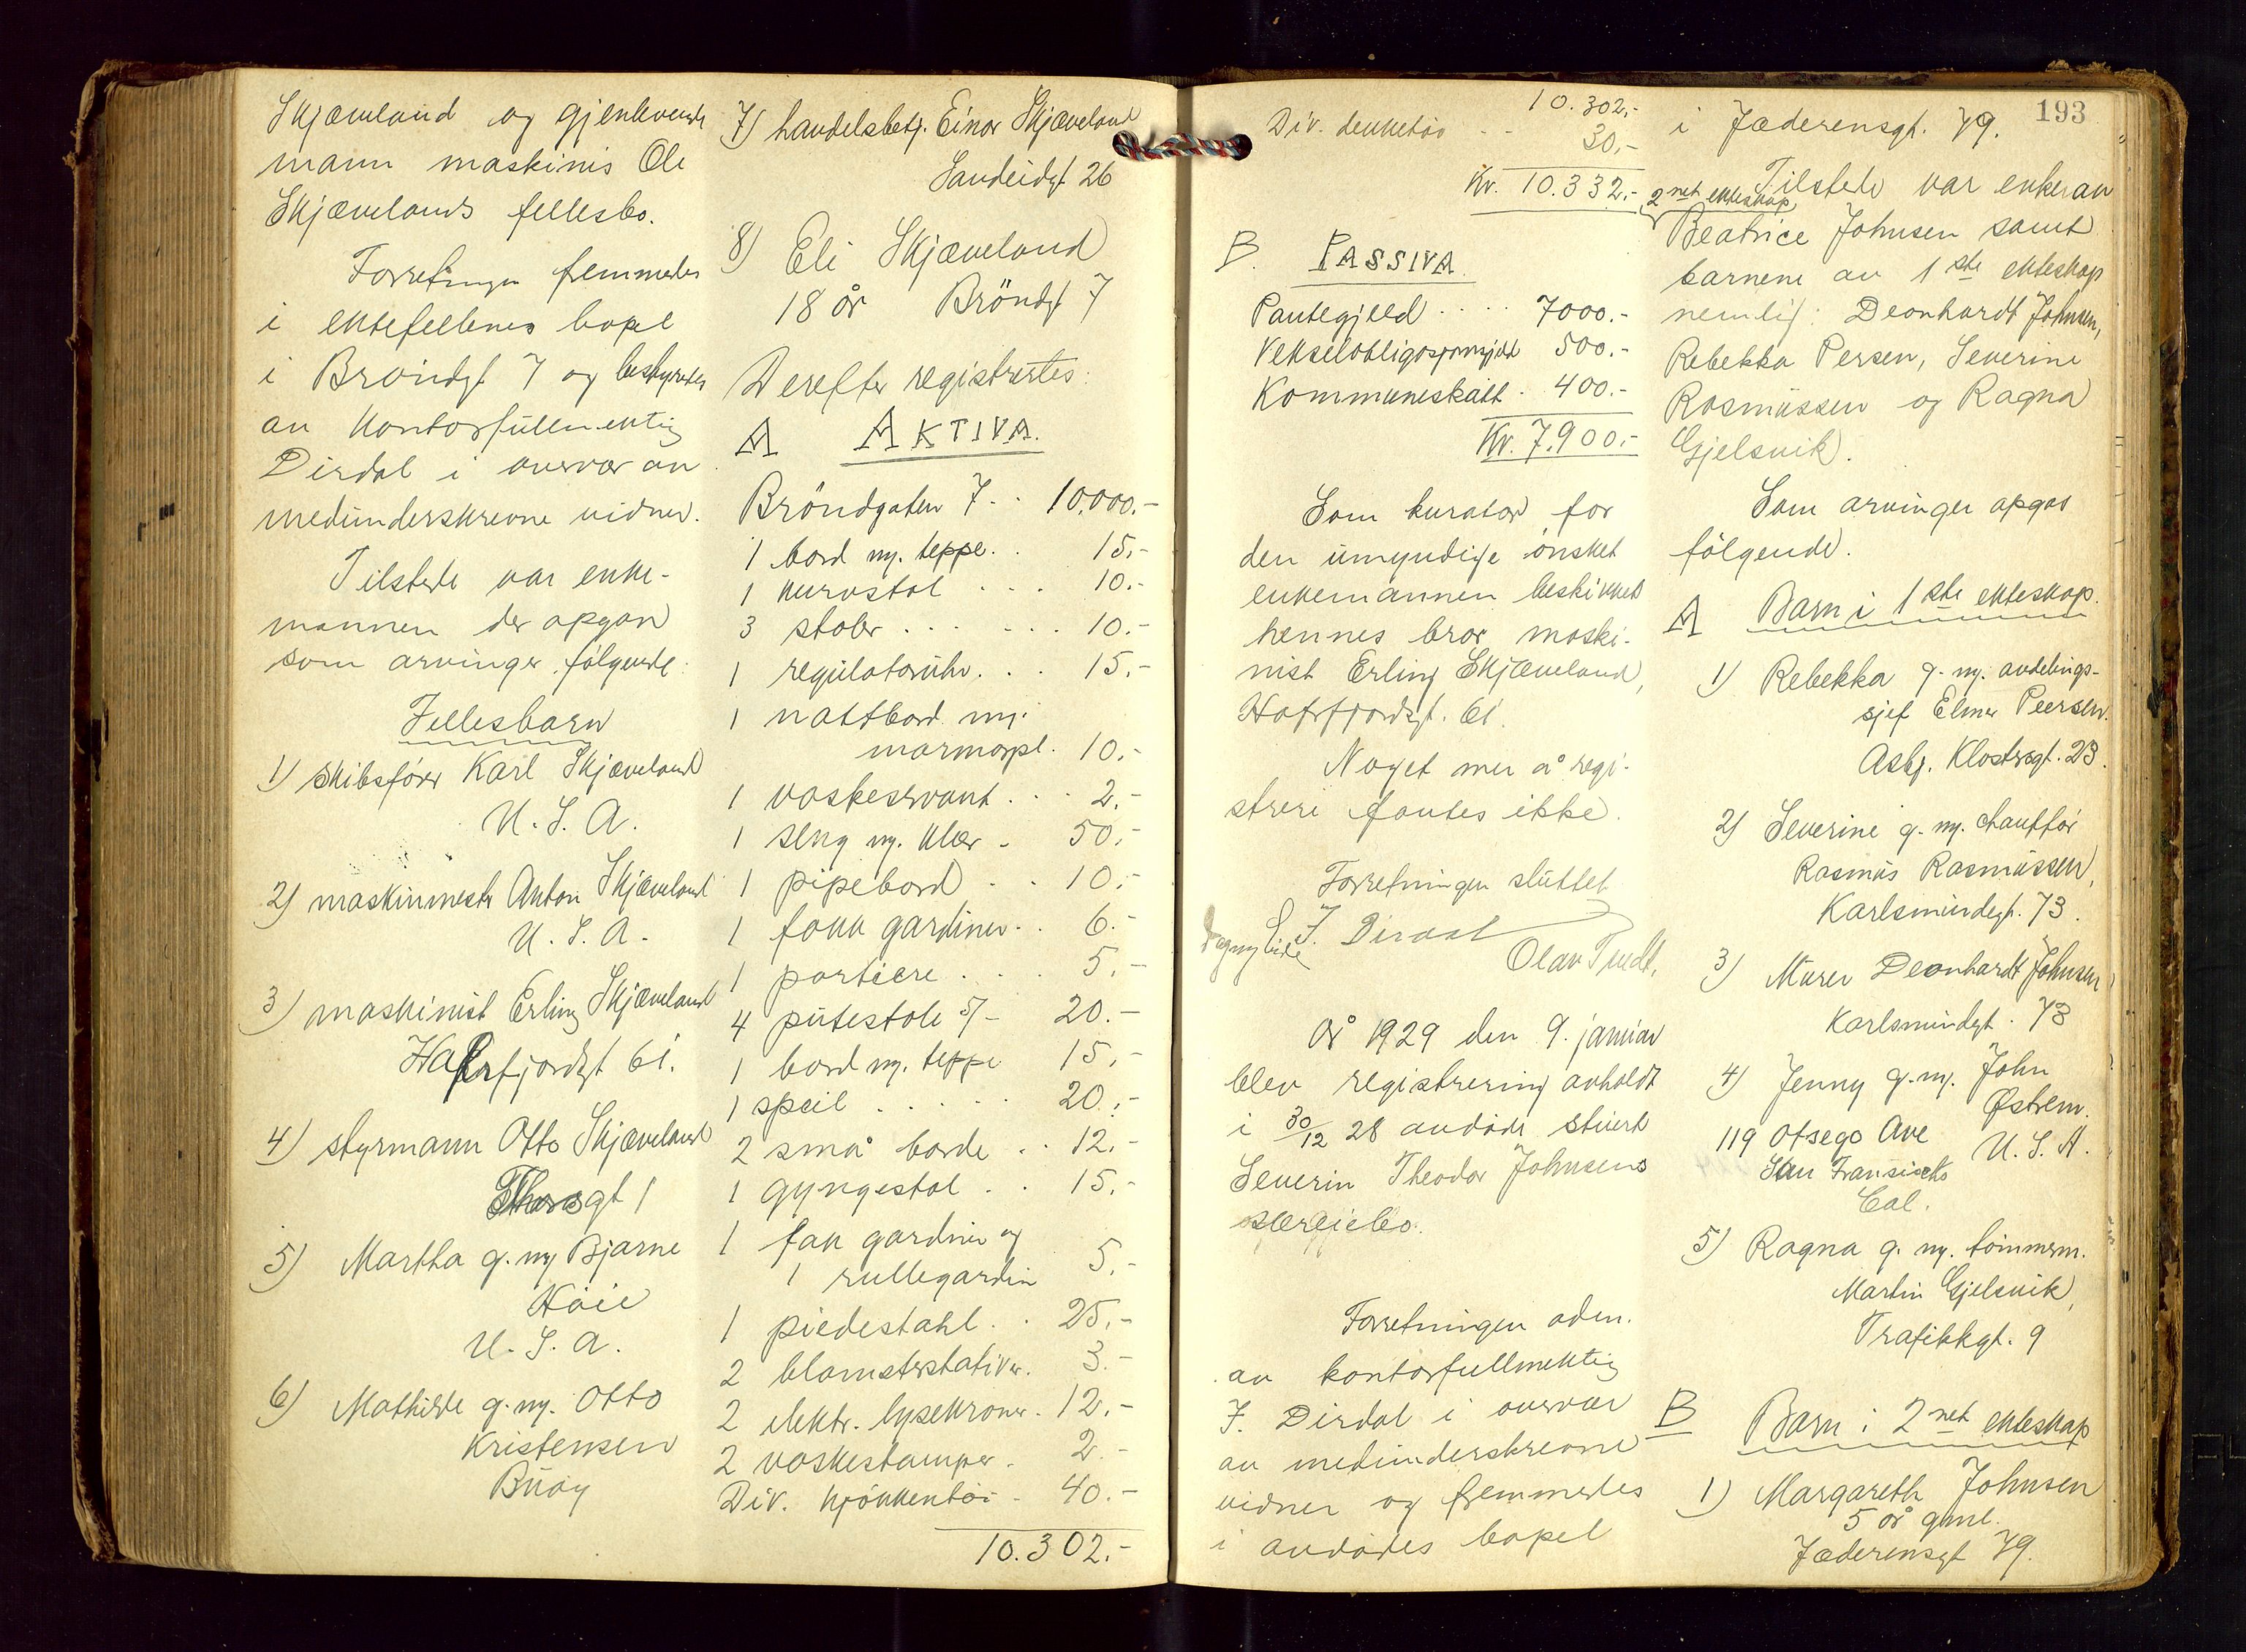 Skjæveland og gjenlevende
mann maskinis Ole
Skjævelands fellesbo.
Forretningen fremmedes
i ektefellenes bopel
i Bröndgt 7 og bestyredes
av kontorfullmektig
Dirdal i overvær av
medunderskrevne vidner.
Tilstede var enke-
mannen der opgav
som arvinger følgende:
Fellesbarn
1) skibsfører Karl Skjæveland
U.S.A.
2) maskinmester Anton Skjæveland
U.S.A.
3) maskinist Erling Skjæveland
Hafrsfjordgt 61.
4) styrmann Otto Skjæveland
gt 1
5) Martha g. m. Bjarne
Høie
U.S.A.
6) Mathilde g. m. Otto
Kristensen
Buøy
7) handelsbetj. Einar Skjæveland
Sandeidgt 26
8) Eli Skjæveland
18 år Bröndgt 7
Derefter registrertes:
A AKTIVA.
Bröndgaten 7 . . 10.000.-
1 bord m. teppe . . 15.-
1 kurvstol . . . 10.-
3 stoler . . . . . . 10.-
1 regulatoruhr . . . 15.-
1 nattbord m.
marmorpl. 10.-
1 vaskeservant . . . 2.-
1 seng m. klær - 50.-
1 pipebord . . 10.-
1 fakk gardiner . . 6.-
1 portiere . . . 5.-
4 putestole 5/- 20.-
1 bord m. teppe 15.-
1 speil . . . . . 20.-
2 små borde . . 12.-
1 gyngestol . . 15.-
1 fakk gardiner og
1 rullegardin 5.-
1 piedestahl . . 25.-
2 blomsterstativer. 3.-
2 elektr. lysekroner. 12.-
2 vaskestamper. 2.-
Div. kjökkentöi - 40.-
10.302.-
193
10.302.-
Div. dekketøi . . 30.-
Kr. 10.332.-
B. PASSIVA.
Pantegjeld . . . . 7000.-
Vekselobligasjonsgjeld 500.-
Kommuneskatt . 400.-
Kr. 7.900.-
Som kurator for
den umyndige ønsket
enkemannen beskikket
hennes bror, maski-
nist Erling Skjæveland,
Hafrsfjordgt. 61.
Noget mer å regi-
strere fantes ikke.
Forretningen sluttet
F. Dirdal
Dagny Eide
Olav Tvedt.
År 1929 den 9. januar
blev registrering avholdt
i 30/12 28 avdøde stuert
Severin Theodor Johnsens
særeiebo.
Forretningen adm.
av kontorfullmektig
F. Dirdal i overvær
av medunderskrevne
vidner og fremmedes
i avdødes bopel
i Jæderensgt. 79.
Tilstede var enken av
2net ekteskap
Beatrice Johnsen samt
barnene av 1ste ekteskap
nemlig: Deonhardt Johnsen,
Rebekka Persen, Severine
Rasmussen og Ragna
Gjelsvik.
Som arvinger opgas
følgende.
A Barn i 1ste ekteskap.
1) Rebekka g. m. avdelings-
sjef Elmer Peersen.
Asbj. Klostersgt. 23.
2) Severine g. m. chauffør
Rasmus Rasmussen,
Karlsmindegt. 73.
3) Murer Deonhardt Johnsen
Karlsmindegt. 73
4) Jenny g. m. John
Østrem.
119 Otsego Ave U.S.A.
San Fransiscko
Cal.
5) Ragna g. m. tømmerm.
Martin Gjelsvik,
Trafikkgt. 9
B Barn i 2net ekteskap
1) Margareth Johnsen
5 år gml.
Jæderensgt 79.